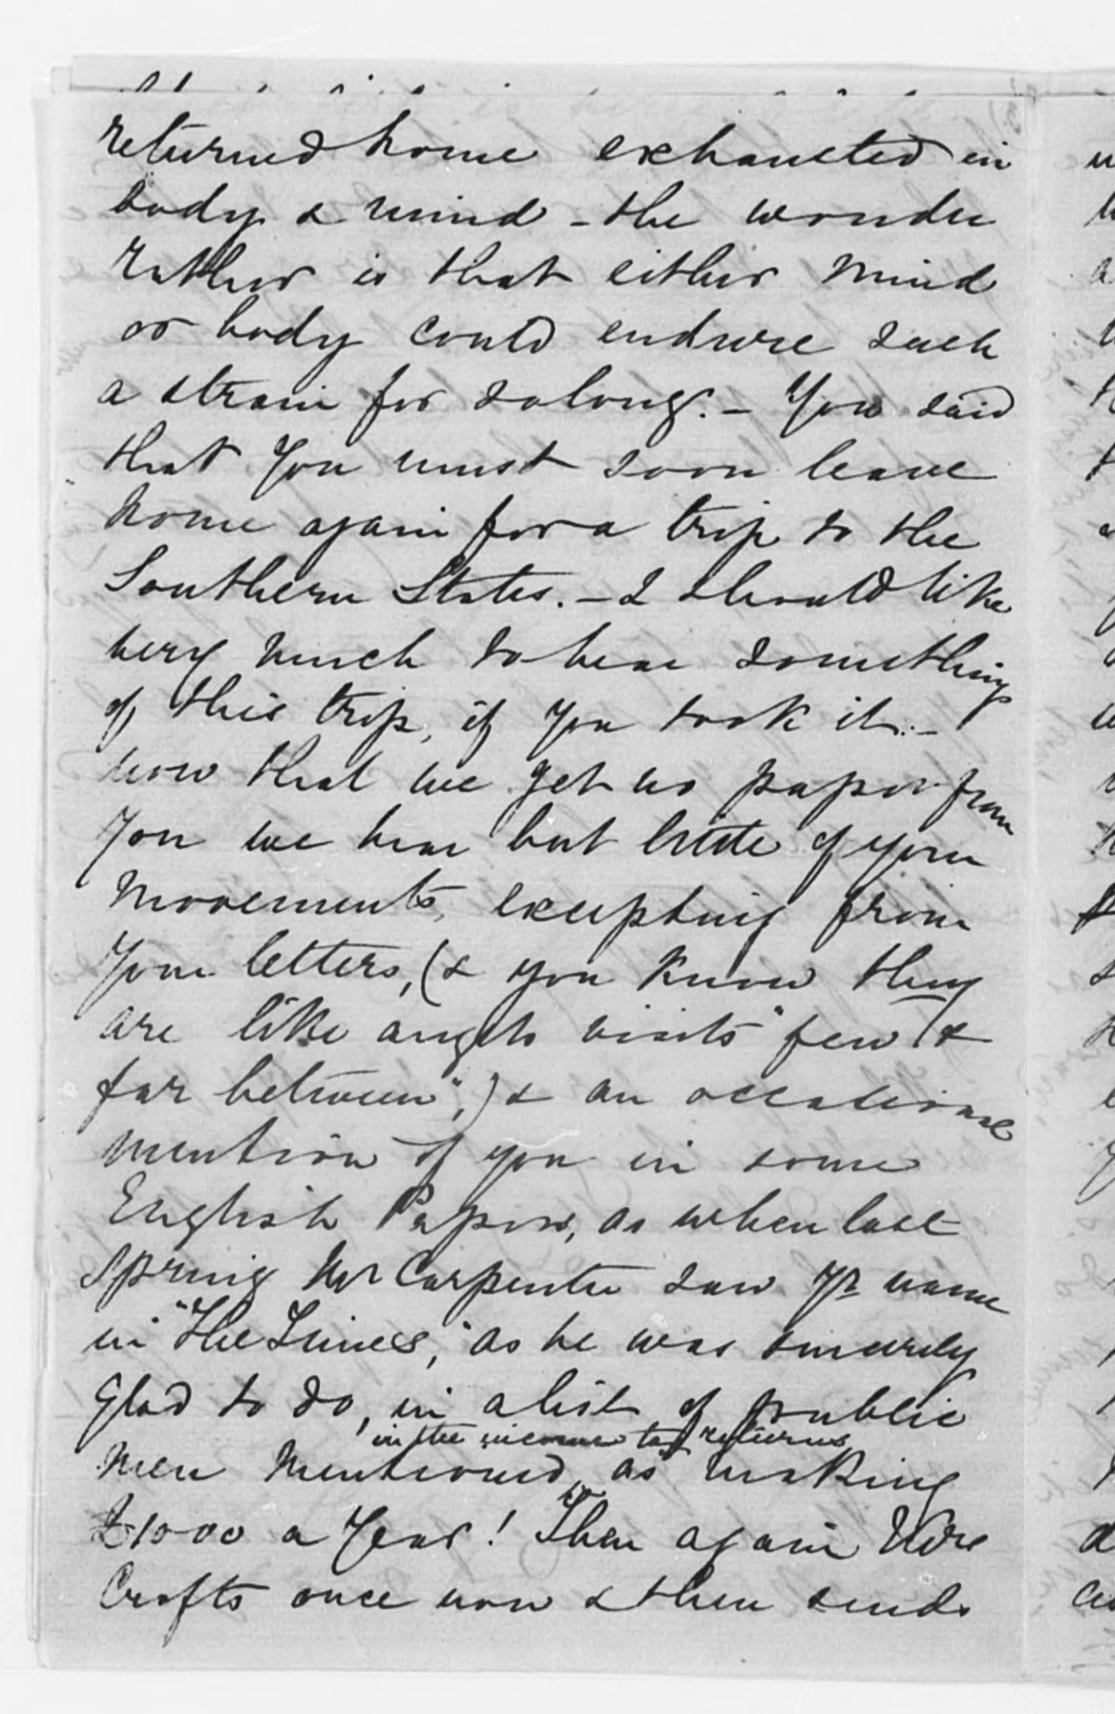 returned home exhausted in
body & mind - the wonder
rather is that either mind
or body could endure such
a strain for so long. - You said
that you must soon leave
home again for a trip to the
Southern States. - I should like
very much to hear something
of this trip, if you took it. -
now that we get no paper from
you we hear but little of your
movements, excepting from
your letters, (& you know they
are like angels visits "few &
far between",) & an occasional
mention of you in some
English Papers, as when last
Spring Mr Carpenter saw yr name
in "The Times," as he was sincerely
glad to do, in a list of public
in the income tax returns
men mentioned, as making
£1000 a year! Then again Mrs
Crofts once now & then sends